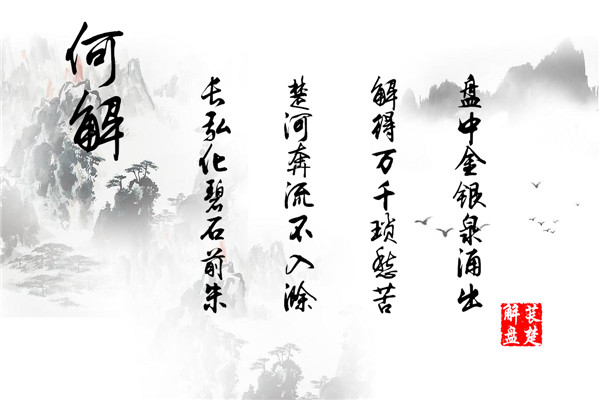 何解
苌弘化碧石前朱
楚河奔流不入滁
解得万千琐愁苦
盘中金银泉涌出
苌楚
解盘